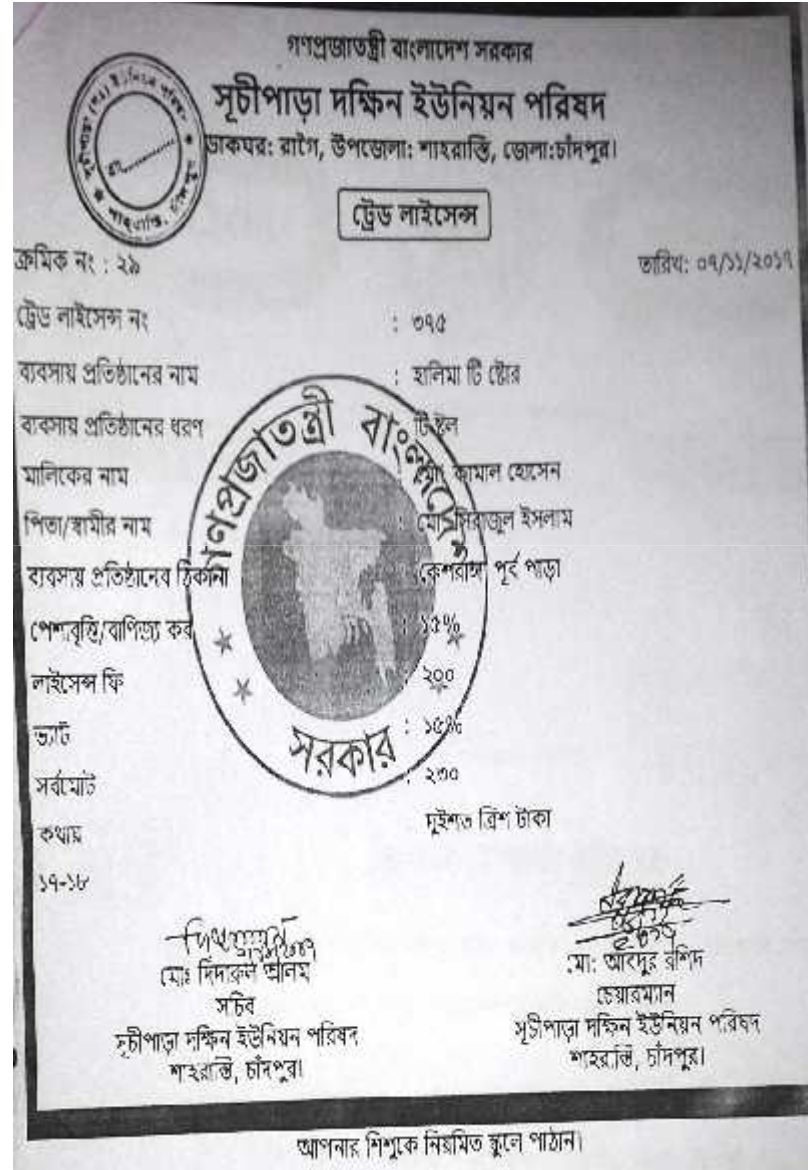 গণপ্রজাতন্ত্রী বাংলাদেশ সরকার
সূচীপাড়া দক্ষিন ইউনিয়ন পরিষদ
ডাকঘর: রাগৈ, উপজেলা: শাহরাস্তি, জেলা:চাঁদপুর।
ট্রেড লাইসেন্স
ক্রমিক নং : ২৯ তারিখ: ০৭/১১/২০১৭
ট্রেড লাইসেন্স নং : ৩৭৫
ব্যবসায় প্রতিষ্ঠানের নাম : হালিমা টি ষ্টোর
ব্যবসায় প্রতিষ্ঠানের ধরণ টি ষ্টল
মালিকের নাম : মোঃ কামাল হোসেন
পিতা/স্বামীর নাম : মোঃ সিরাজুল ইসলাম
ব্যবসায় প্রতিষ্ঠানের ঠিকানা : কেশরাঙ্গা পূর্ব পাড়া
পেশাবৃত্তি/বাণিজ্য কর : ১৫%
লাইসেন্স ফি : ২০০
ভ্যাট : ১৫%
সর্বমোট : ২৩০
কথায় দুইশত ত্রিশ টাকা
১৭-১৮
গণপ্রজাতন্ত্রী বাংলাদেশ
সরকার
মোঃ দিদারুল আলম
সচিব
সূচীপাড়া দক্ষিন ইউনিয়ন পরিষদ
শাহরাস্তি, চাঁদপুর।
মো: আবদুর রশিদ
চেয়ারম্যান
সূচীপাড়া দক্ষিন ইউনিয়ন পরিষদ
শাহরাস্তি, চাঁদপুর।
আপনার শিশুকে নিয়মিত স্কুলে পাঠান।